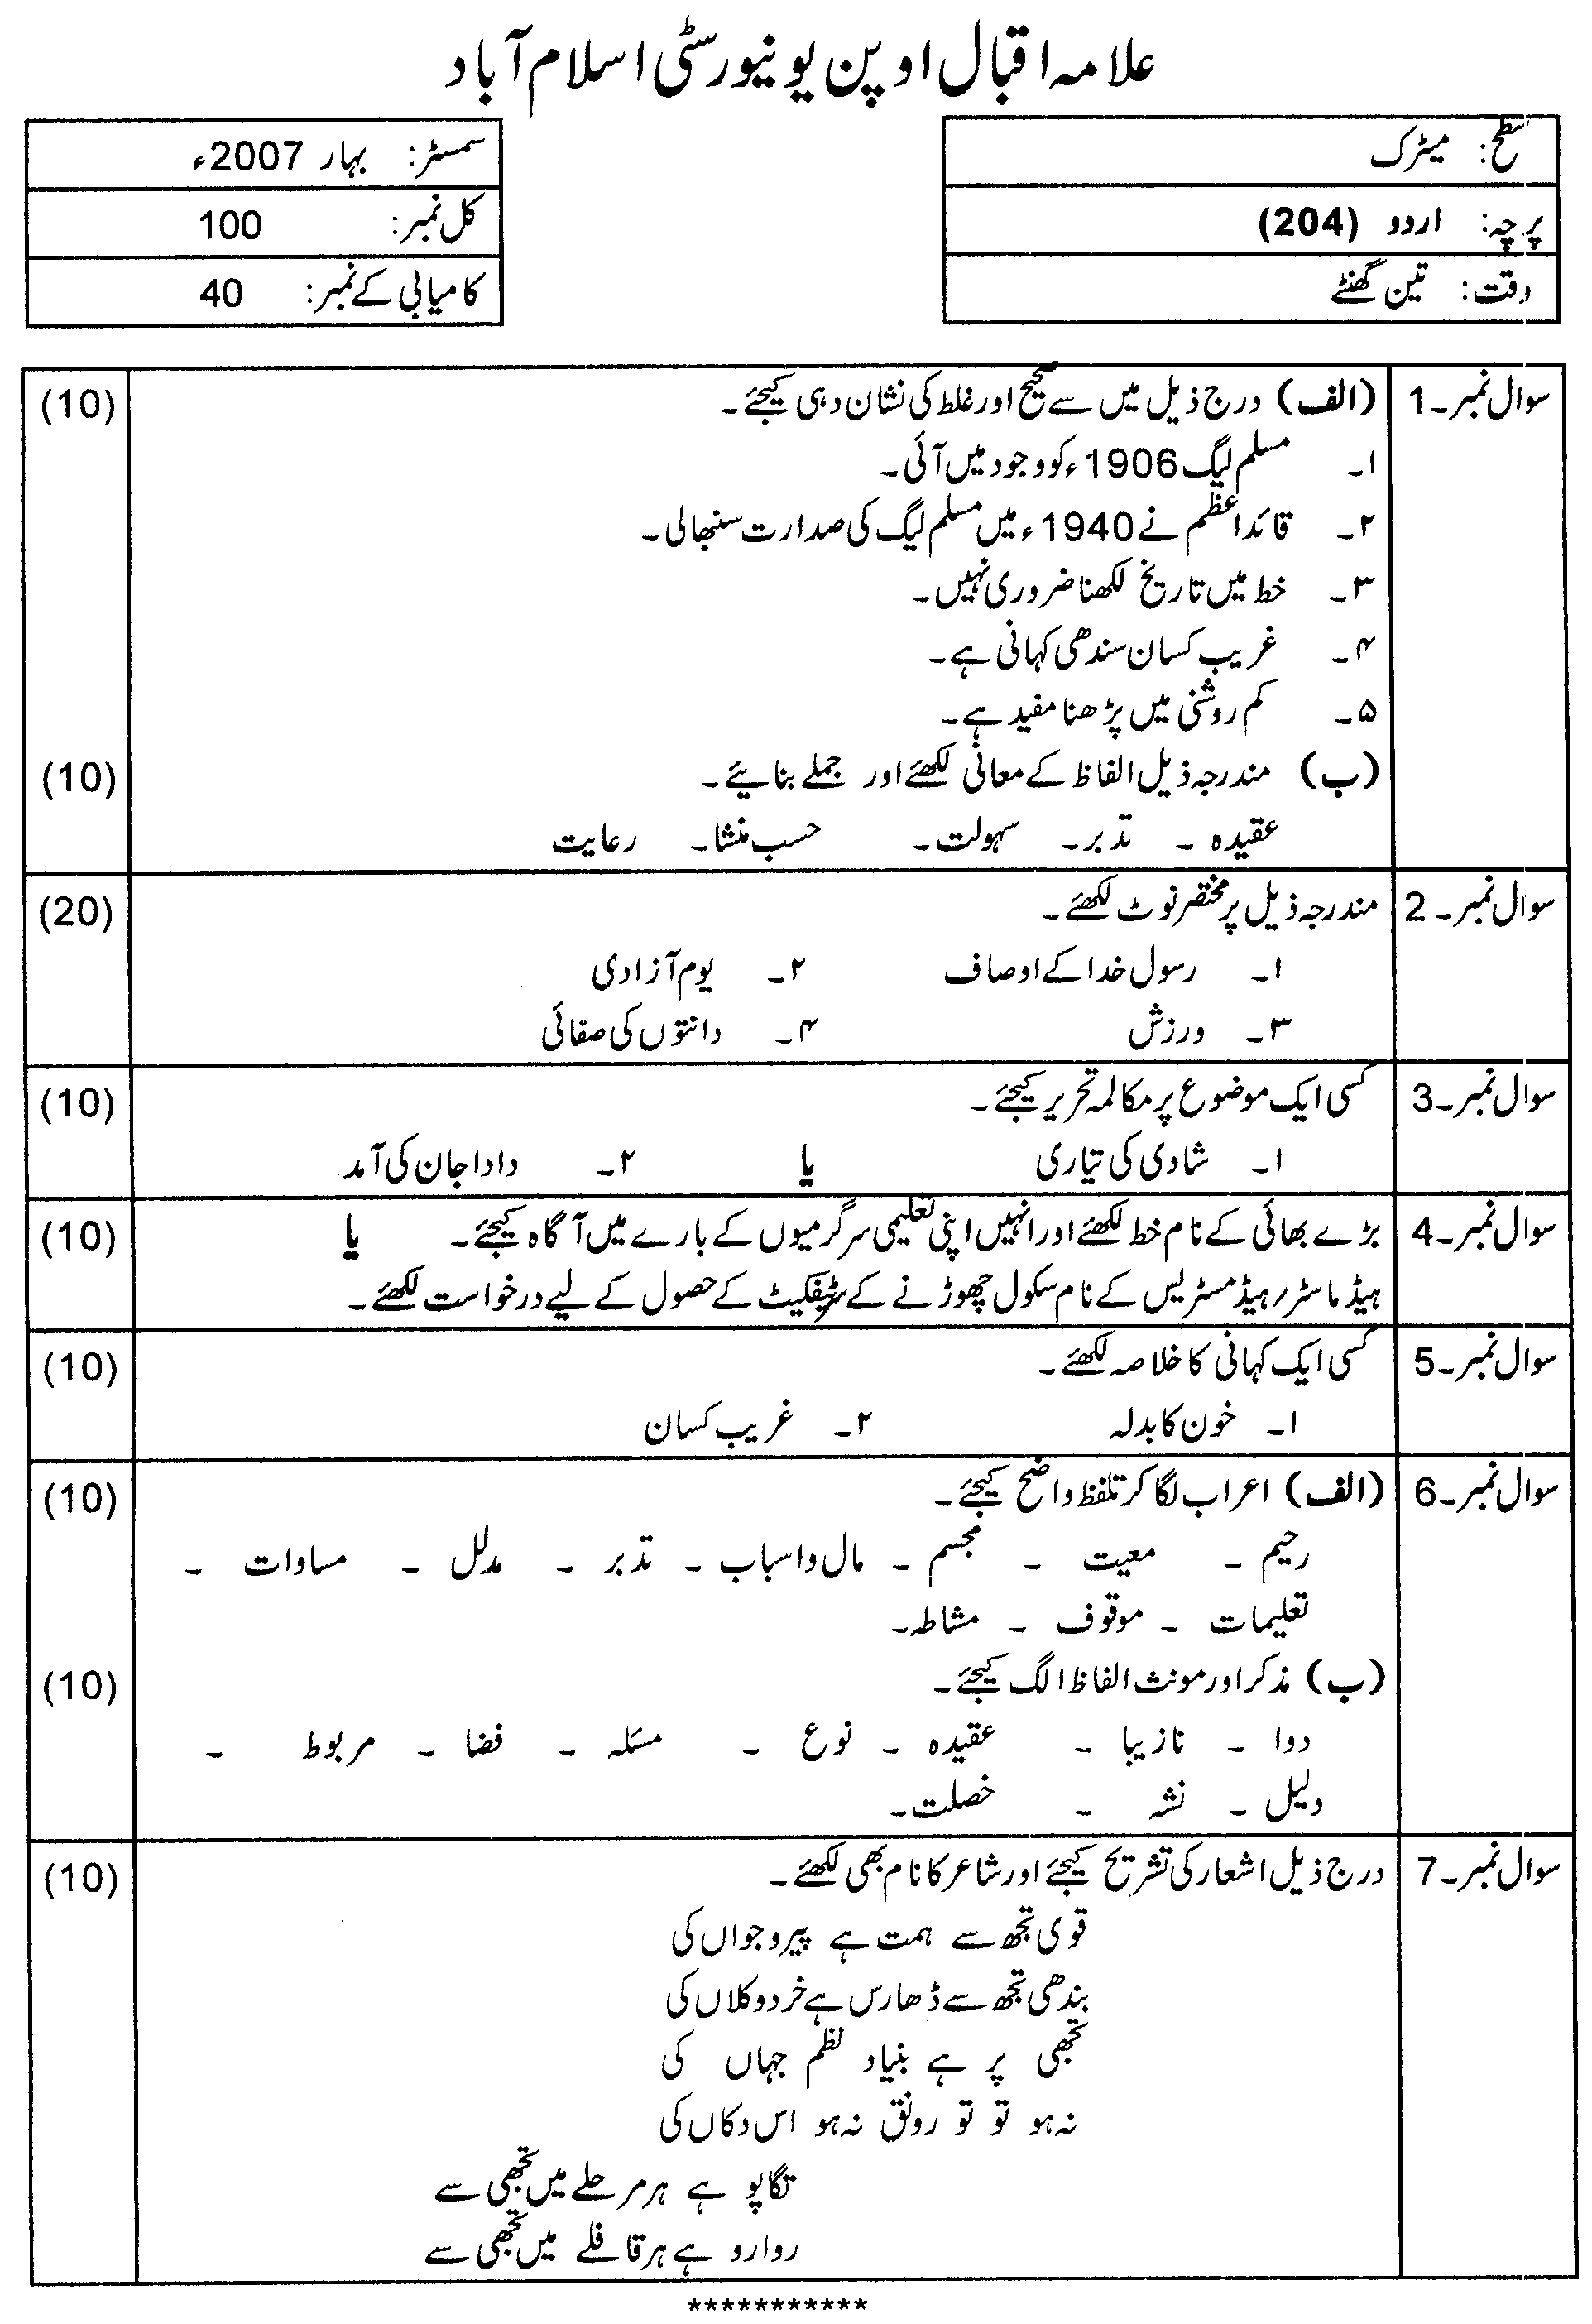 علامہ اقبال اوپن یونیورسٹی اسلام آباد
سطح: میٹرک
پرچہ: اردو (204)
وقت: تین گھنٹے
سمسٹر: بہار 2007ء
کل نمبر: 100
کامیابی کے نمبر: 40
سوال نمبر۔1 (الف) درج ذیل میں سے صحیح اور غلط کی نشان دہی کیجئے۔ (10)
۱۔ مسلم لیگ 1906ء کو وجود میں آئی۔
۲۔ قائداعظم نے 1940ء میں مسلم لیگ کی صدارت سنبھالی۔
۳۔ خط میں تاریخ لکھنا ضروری نہیں۔
۴۔ غریب کسان سندھی کہانی ہے۔
۵۔ کم روشنی میں پڑھنا مفید ہے۔
(ب) مندرجہ ذیل الفاظ کے معانی لکھئے اور جملے بنایئے۔ (10)
عقیدہ ۔ تدبر۔ سہولت۔ حسب منشا۔ رعایت
سوال نمبر۔ 2 مندرجہ ذیل پر مختصر نوٹ لکھئے۔ (20)
۱۔ رسول خدا کے اوصاف ۲۔ یوم آزادی
۳۔ ورزش ۴۔ دانتوں کی صفائی
سوال نمبر۔3 کسی ایک موضوع پر مکالمہ تحریر کیجئے۔ (10)
۱۔ شادی کی تیاری یا ۲۔ دادا جان کی آمد
سوال نمبر۔4 بڑے بھائی کے نام خط لکھئے اور انہیں اپنی تعلیمی سرگرمیوں کے بارے میں آگاہ کیجئے۔ یا (10)
ہیڈ ماسٹر/ہیڈ مسٹریس کے نام سکول چھوڑنے کے سرٹیفکیٹ کے حصول کے لیے درخواست لکھئے۔
سوال نمبر۔5 کسی ایک کہانی کا خلاصہ لکھئے۔ (10)
۱۔ خون کا بدلہ ۲۔ غریب کسان
سوال نمبر۔6 (الف) اعراب لگا کر تلفظ واضح کیجئے۔ (10)
رحیم ۔ معیت ۔ مجسم ۔ مال و اسباب ۔ تدبر ۔ مدلل ۔ مساوات ۔
تعلیمات ۔ موقوف ۔ مشاطہ۔
(ب) مذکر اور مونث الفاظ الگ کیجئے۔ (10)
دوا ۔ نازیبا ۔ عقیدہ ۔ نوع ۔ مسئلہ ۔ فضا ۔ مربوط ۔
دلیل ۔ نشہ ۔ خصلت۔
سوال نمبر۔7 درج ذیل اشعار کی تشریح کیجئے اور شاعر کا نام بھی لکھئے۔ (10)
قوی تجھ سے ہمت ہے پیر و جواں کی
بندھی تجھ سے ڈھارس ہے خرد و کلاں کی
تجھی پر ہے بنیاد نظم جہاں کی
نہ ہو تو تو رونق نہ ہو اس دکاں کی
تگاپو ہے ہر مرحلے میں تجھی سے
روارو ہے ہر قافلے میں تجھی سے
***********